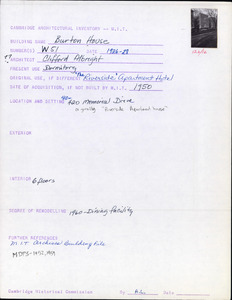 CAMBRIDGE ARCHITECTURAL INVENTORY -- M.I.T.
BUILDING NAME Burton House
NUMBER(S) W51 DATE 1926-28
ARCHITECT Clifford Albright
PRESENT USE Dormitory
ORIGINAL USE, IF DIFFERENT The "Riverside" Apartment Hotel
DATE OF ACQUISITION, IF NOT BUILT BY M.I.T. 1950
LOCATION AND SETTING 420 Memorial Drive
originally "Riverside Apartment House"
EXTERIOR
INTERIOR 6 floors
DEGREE OF REMODELLING 1960 - Dining Facility
FURTHER REFERENCES
MIT Archives Building File
Cambridge Historical Commission By Date